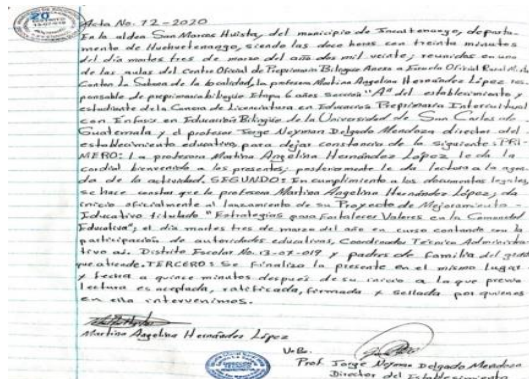 Acta No. 12-2020
En la aldea San Marcos Huista, del municipio de Jacaltenango, departa-
mento de Huehuetenango, siendo las doce horas con treinta minutos
del día martes tres de marzo del año dos mil veinte, reunidos en una
de las aulas del Centro Oficial de Preprimaria Bilingüe Anexo a Escuela Oficial Rural Mixta
Cantón La Sabana de la localidad, la profesora Martina Angelina Hernández López res-
ponsable de preprimaria bilingüe Etapa 6 años sección "A" del establecimiento y
estudiante de la Carrera de Licenciatura en Educación Preprimaria Intercultural
con Énfasis en Educación Bilingüe de la Universidad de San Carlos de
Guatemala y el profesor Jorge Neyman Delgado Mendoza director del
establecimiento educativo, para dejar constancia de lo siguiente: PRI-
MERO: La profesora Martina Angelina Hernández López le da la
cordial bienvenida a los presentes, posteriormente le da lectura a la agen-
da de la actividad. SEGUNDO: En cumplimiento a los documentos legales,
se hace constar que la profesora Martina Angelina Hernández López, da
inicio oficialmente al lanzamiento de su Proyecto de Mejoramiento
Educativo titulado "Estrategias para fortalecer Valores en la Comunidad
Educativa", el día martes tres de marzo del año en curso contando con la
participación de autoridades educativas, Coordinador Técnico Administra-
tivo del Distrito Escolar No. 13-07-019 y padres de familia del grado
que atiende. TERCERO: Se finaliza la presente en el mismo lugar
y fecha a quince minutos después de su inicio a la que previa
lectura es aceptada, ratificada, firmada y sellada por quienes
en ella intervenimos.
Martina Angelina Hernández López
Vo.Bo.
Prof. Jorge Neyman Delgado Mendoza
Director del Establecimiento